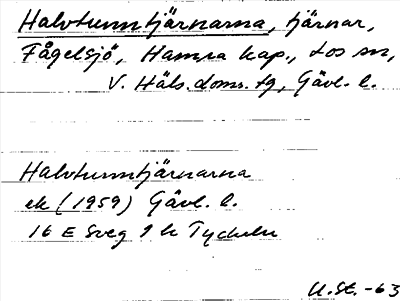 Halvtunntjärnarna, tjärnar,
Fågelsjö, Hamra kap., Los sn,
V. Häls. doms. tg, Gävl. l.
Halvtunntjärnarna
ek (1959) Gävl. l.
16 E Sveg 9 h
U. St. -63